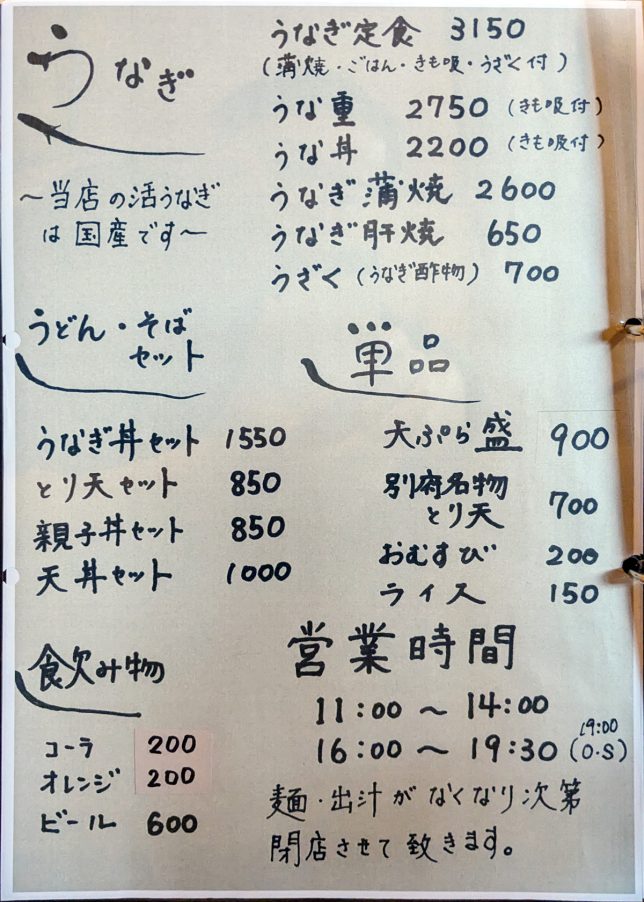 うなぎ
～当店の活うなぎ
は国産です～
うなぎ定食 3150
(蒲焼・ごはん・きも吸・うざく付)
うな重 2750 (きも吸付)
うな丼 2200 (きも吸付)
うなぎ蒲焼 2600
うなぎ肝焼 650
うざく (うなぎ酢物) 700
うどん・そば
セット
うなぎ丼セット 1550
とり天セット 850
親子丼セット 850
天丼セット 1000
単品
天ぷら盛 900
別府名物
とり天 700
おむすび 200
ライス 150
飲み物
コーラ 200
オレンジ 200
ビール 600
営業時間
11:00 ～ 14:00
16:00 ～ 19:30 (19:00 O・S)
麺・出汁がなくなり次第
閉店させて致きます。